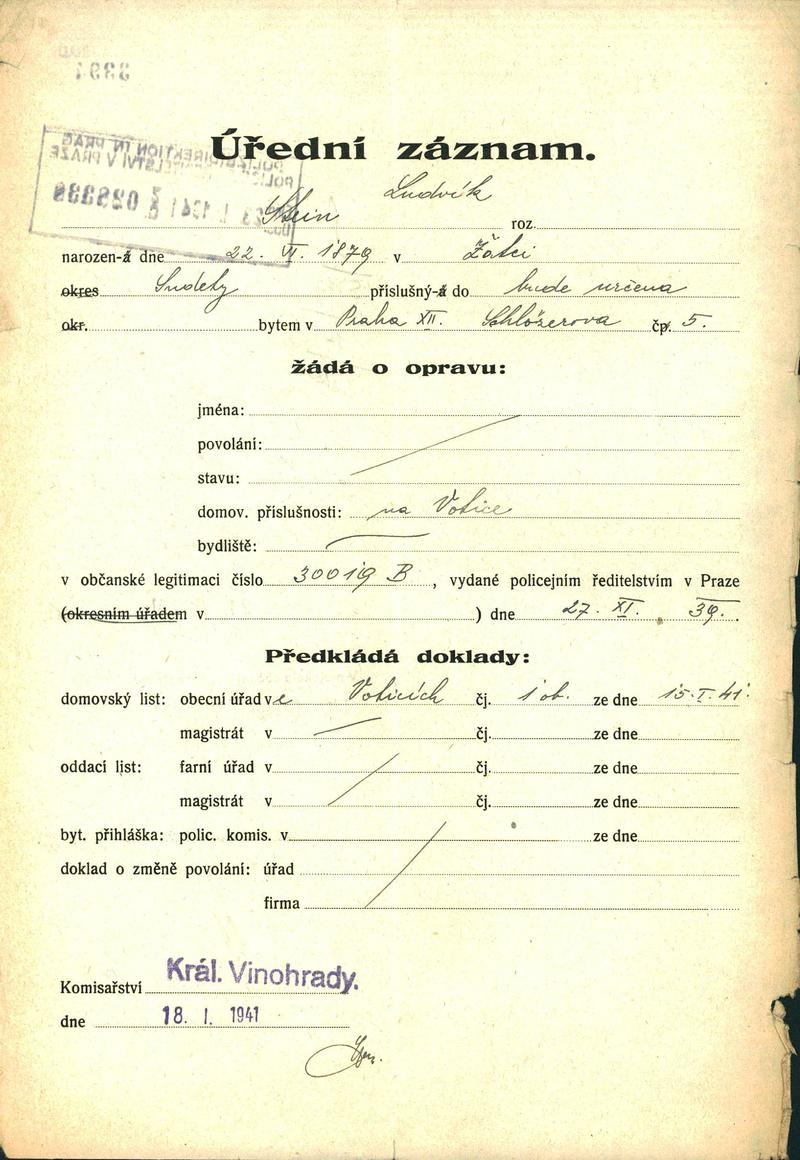 Úřední záznam.
Stein Ludvík roz.
narozen-á dne 22. VI. 1879 v Žatci
okres Sudety příslušný-á do bude určena
okr. bytem v Praha XII. Schlözerova čp. 5.
žádá o opravu:
jména:
povolání:
stavu:
domov. příslušnosti: na Votice
bydliště:
v občanské legitimaci číslo 30019 B, vydané policejním ředitelstvím v Praze
(okresním úřadem v ) dne 27. XI. 39.
Předkládá doklady:
domovský list: obecní úřad ve Voticích čj. 1 ob. ze dne 15. I. 41.
magistrát v čj. ze dne
oddací list: farní úřad v čj. ze dne
magistrát v čj. ze dne
byt. přihláška: polic. komis. v ze dne
doklad o změně povolání: úřad
firma
Komisařství Král. Vinohrady.
dne 18. I. 1941